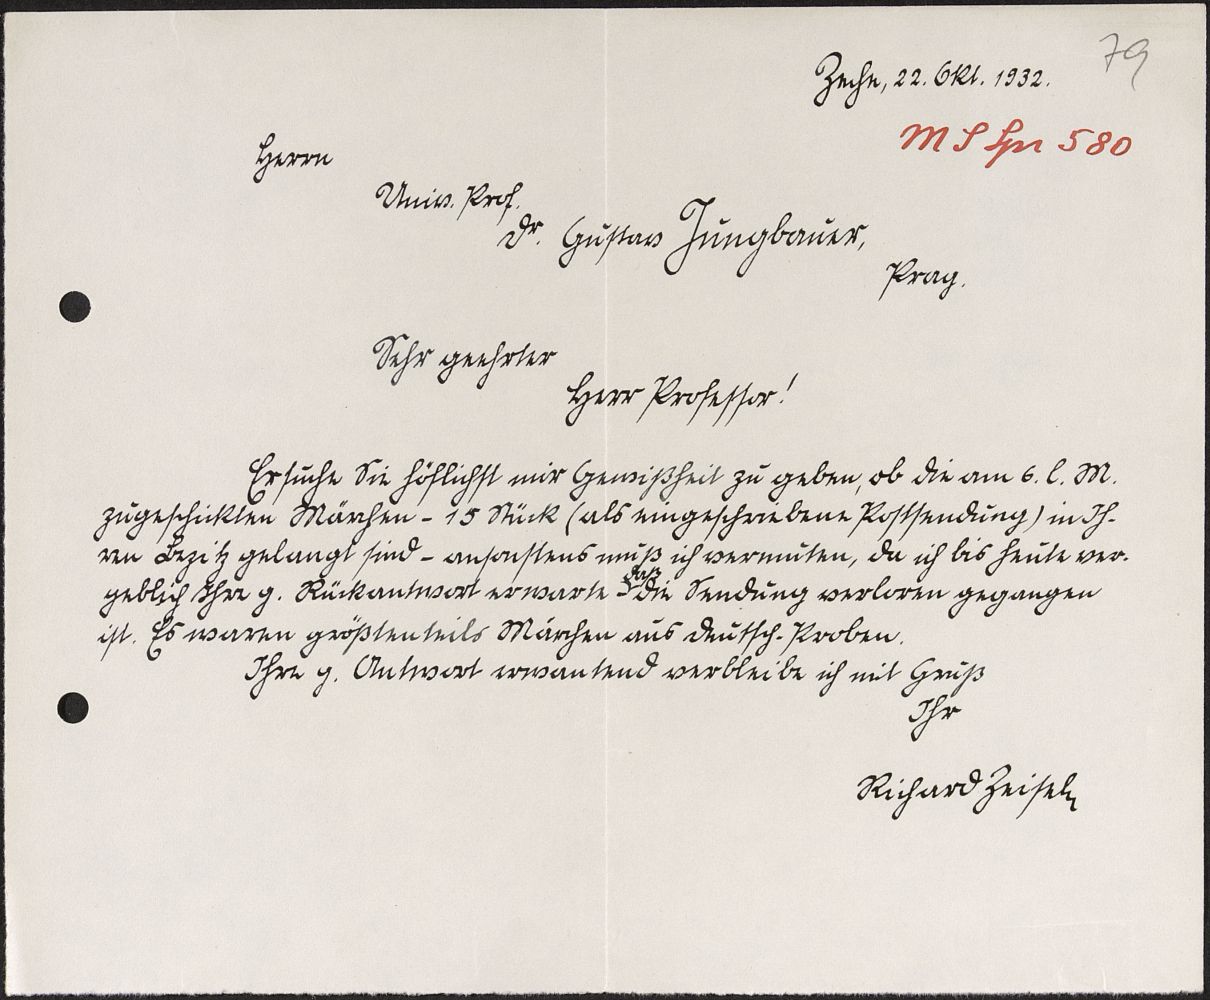 79
Zeche, 22. Okt. 1932.
M S Spr 580
Herrn
Univ. Prof.
Dr. Gustav Jungbauer,
Prag.
Sehr geehrter
Herr Professor!
Ersuche Sie höflichst mir Gewißheit zu geben, ob die am 6. l. M.
zugeschickten Märchen - 15 Stück (als eingeschriebene Postsendung) in Ih-
ren Besitz gelangt sind - ansonstens muß ich vermuten, da ich bis heute ver-
geblich Ihre g. Rückantwort erwarte - daß die Sendung verloren gegangen
ist. Es waren größtenteils Märchen aus Deutsch-Proben.
Ihre g. Antwort erwartend verbleibe ich mit Gruß
Ihr
Richard Zeisel